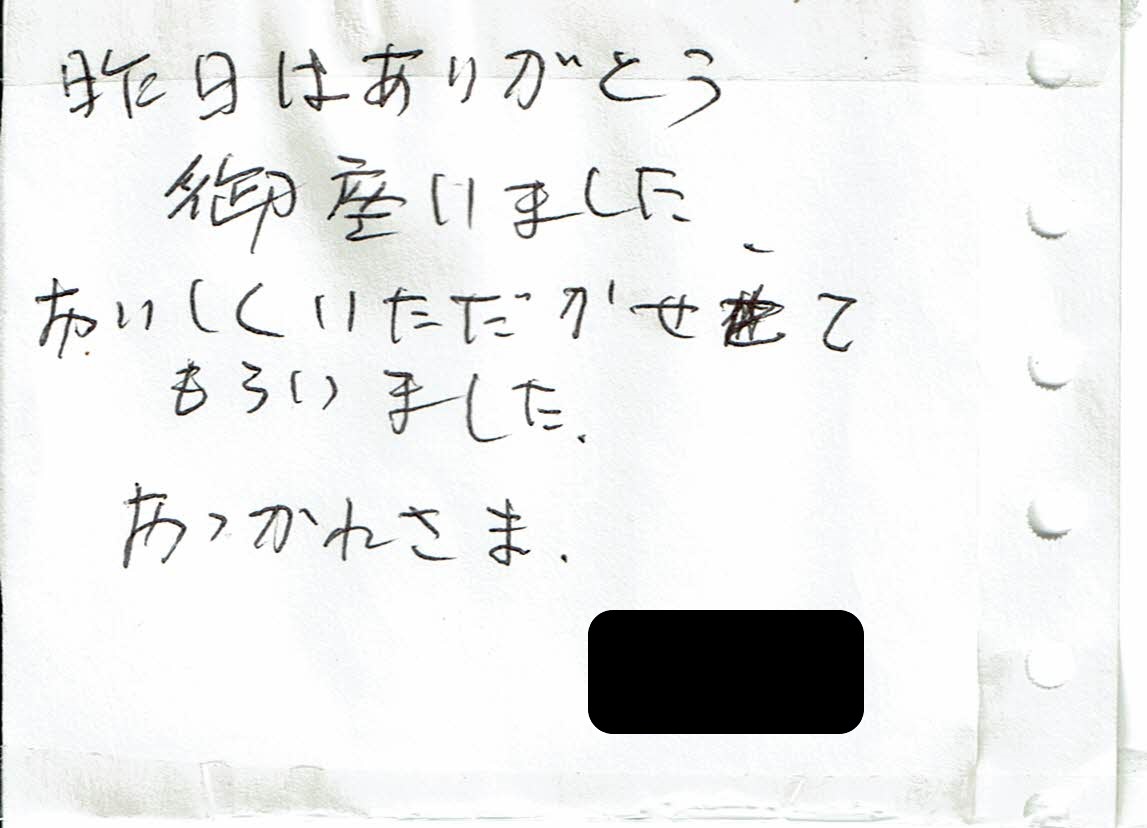 昨日はありがとう
御座いました、
おいしくいただかせて
もらいました.
おつかれさま.